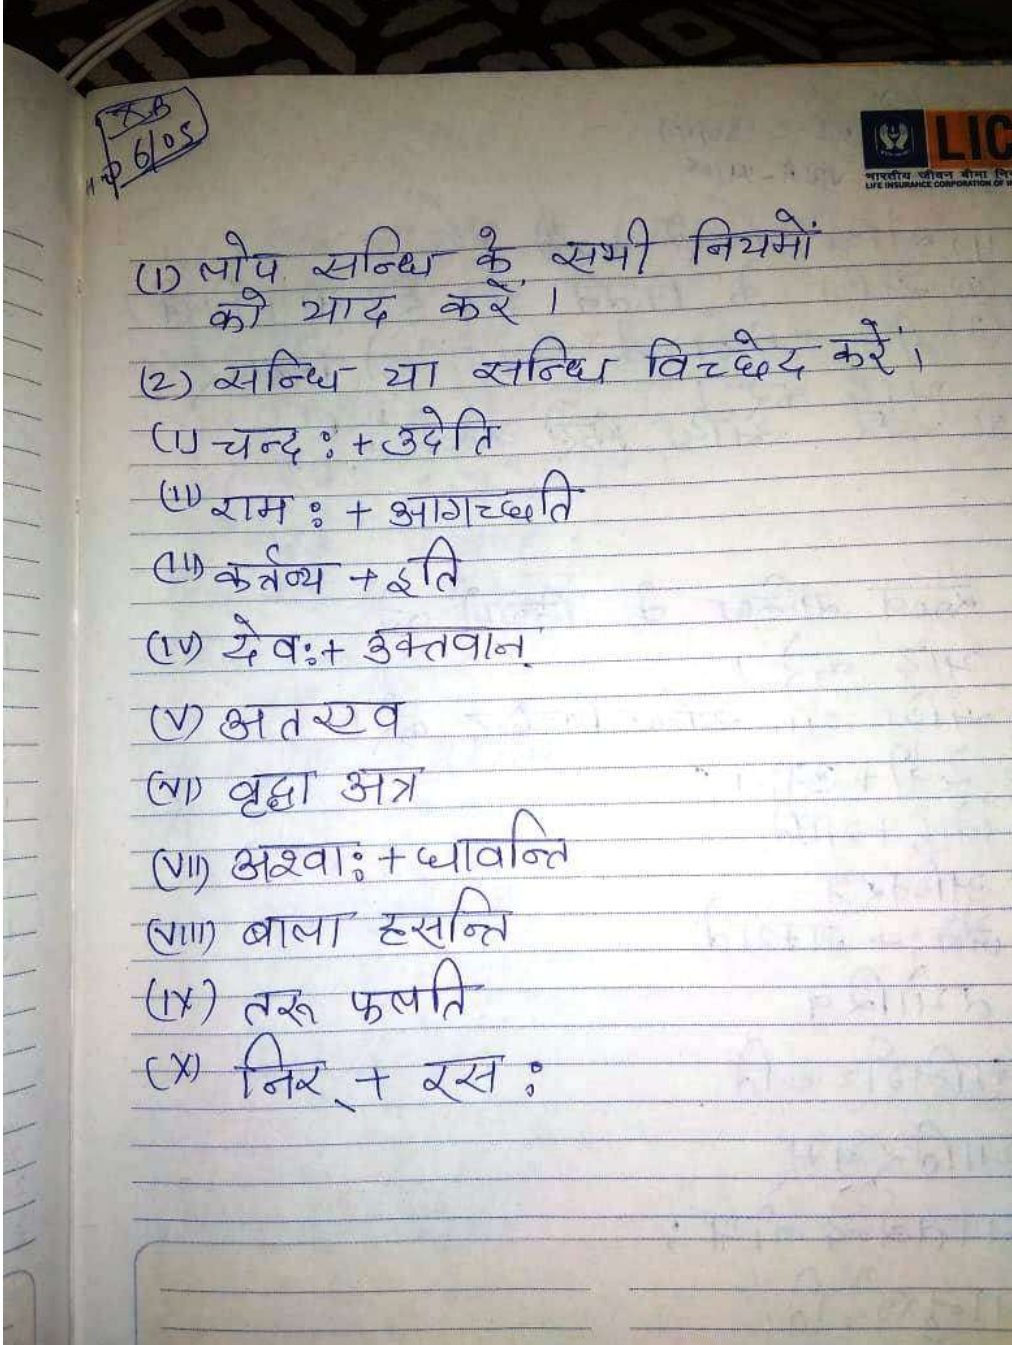 XB
6/05
LIC
भारतीय जीवन बीमा
LIFE INSURANCE CORPORATION OF
(1) लोप सन्धि के सभी नियमों
को याद करें।
(2) सन्धि या सन्धि विच्छेद करें।
(I) चन्द्र: + उदेति
(II) राम: + आगच्छति
(III) कर्त्तव्य + इति
(IV) देव: + उक्तवान्
(V) अत एव
(VI) वृद्धा अत्र
(VII) अश्वा: + धावन्ति
(VIII) बाला हसन्ति
(IX) तरू फलति
(X) निर् + रस: